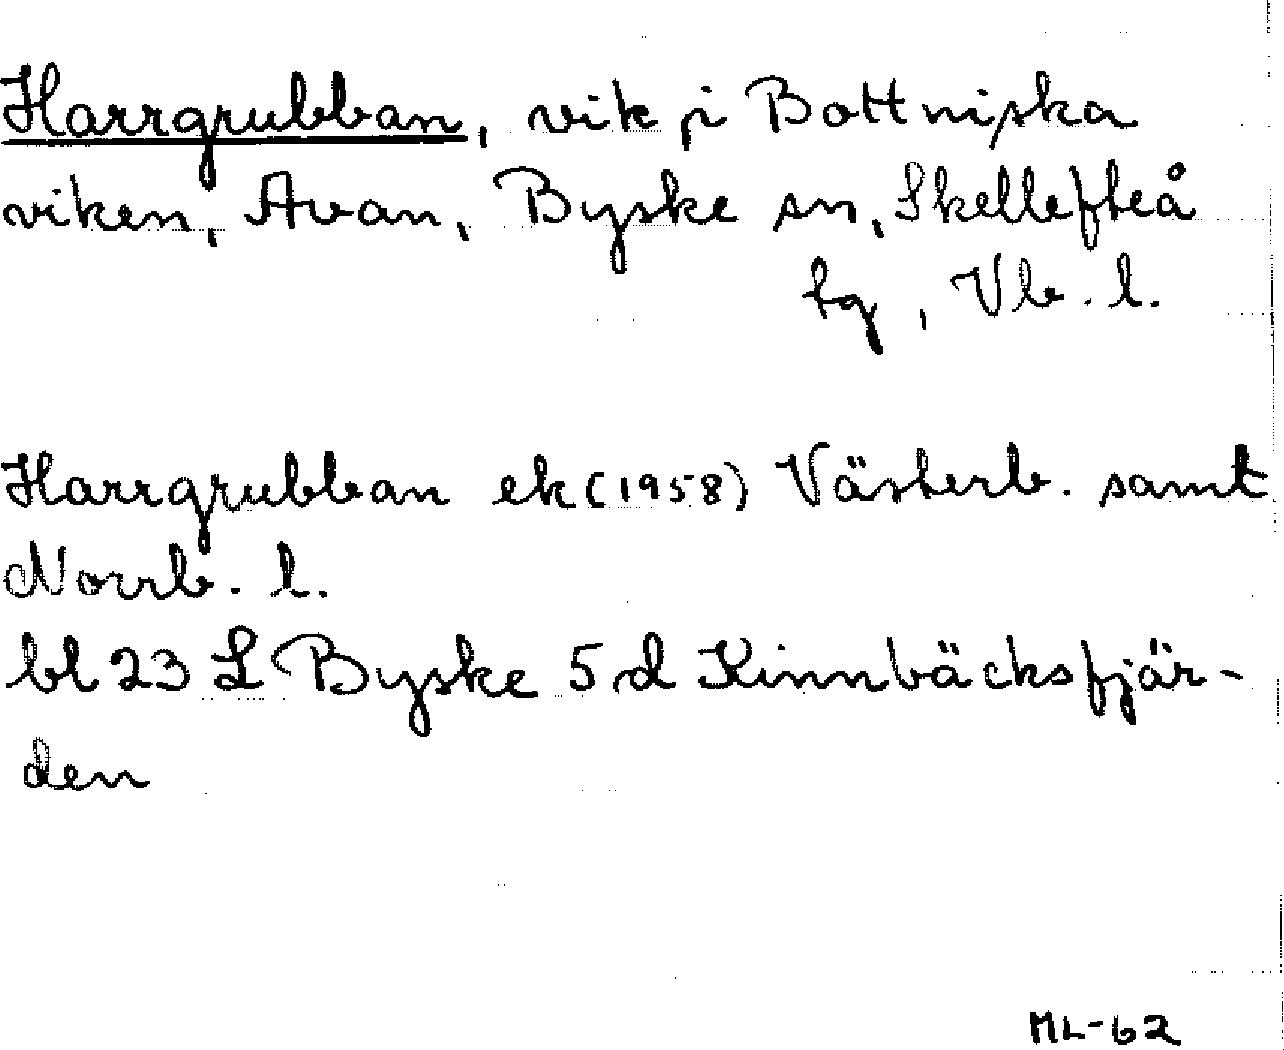 Harrgrubban, vik i Bottniska
viken, Avan, Byske sn, Skellefteå
tg, Vb. l.
Harrgrubban ek (1958) Västerb. samt
Norrb. l.
bl 23 L Byske 5 d Kinnbäcksfjär-
den
ML-62